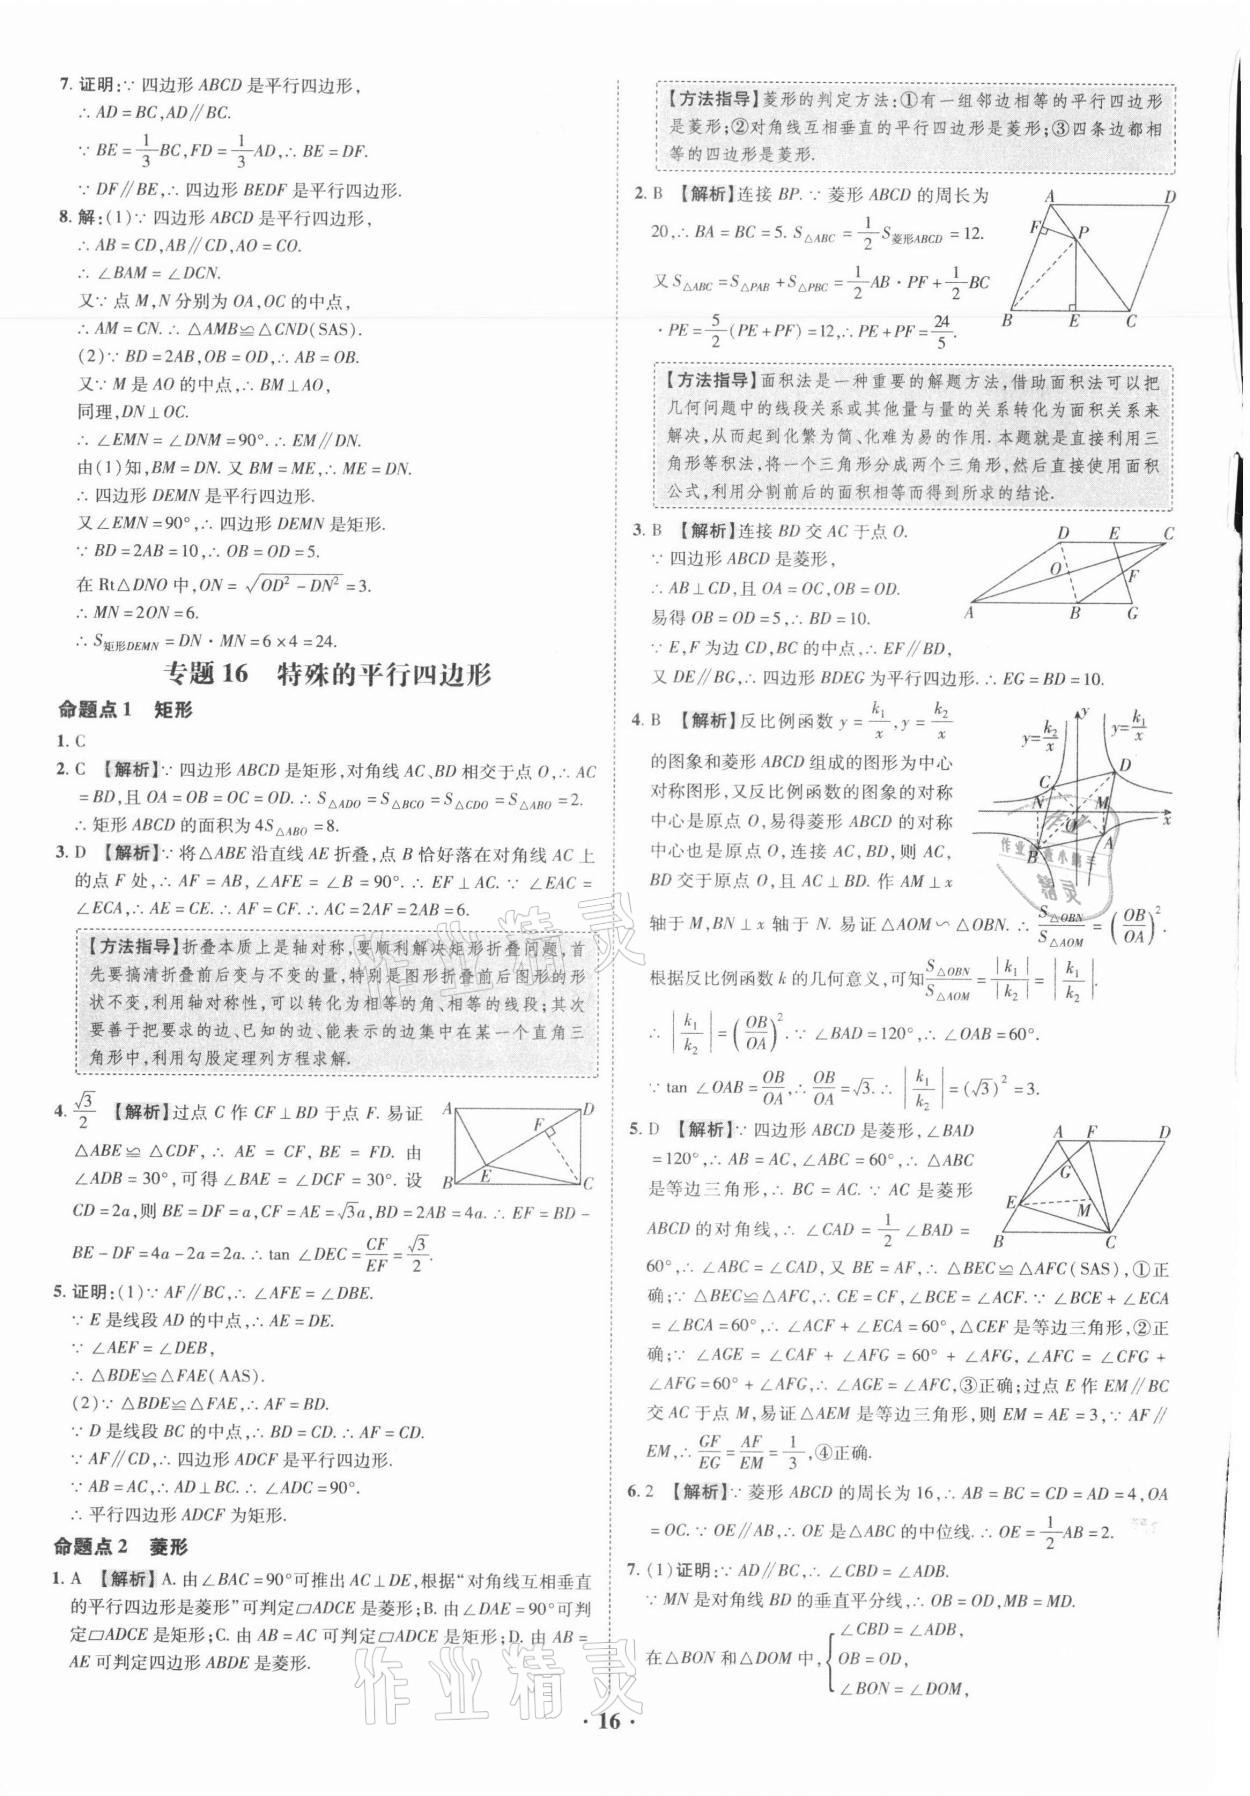 7. 证明:∵ 四边形 ABCD 是平行四边形,
∴ AD=BC,AD∥BC.
∵ BE=1/3BC,FD=1/3AD,∴ BE=DF.
∵ DF∥BE,∴ 四边形 BEDF 是平行四边形.
8. 解:(1)∵ 四边形 ABCD 是平行四边形,
∴ AB=CD,AB∥CD,AO=CO.
∴ ∠BAM=∠DCN.
又∵ 点 M,N 分别为 OA,OC 的中点,
∴ AM=CN.∴ △AMB≌△CND(SAS).
(2)∵ BD=2AB,OB=OD,∴ AB=OB.
又∵ M 是 AO 的中点,∴ BM⊥AO,
同理,DN⊥OC.
∴ ∠EMN=∠DNM=90°.∴ EM∥DN.
由(1)知,BM=DN. 又 BM=ME,∴ ME=DN.
∴ 四边形 DEMN 是平行四边形.
又∠EMN=90°,∴ 四边形 DEMN 是矩形.
∵ BD=2AB=10,∴ OB=OD=5.
在 Rt△DNO 中,ON=√(OD²-DN²)=3.
∴ MN=2ON=6.
∴ S矩形DEMN=DN·MN=6×4=24.
专题 16 特殊的平行四边形
命题点 1 矩形
1. C
2. C 【解析】∵ 四边形 ABCD 是矩形,对角线 AC、BD 相交于点 O,∴ AC
=BD,且 OA=OB=OC=OD.∴ S△ADO=S△BCO=S△CDO=S△ABO=2.
∴ 矩形 ABCD 的面积为 4S△ABO=8.
3. D 【解析】∵ 将△ABE 沿直线 AE 折叠,点 B 恰好落在对角线 AC 上
的点 F 处,∴ AF=AB,∠AFE=∠B=90°.∴ EF⊥AC.∵ ∠EAC=
∠ECA,∴ AE=CE.∴ AF=CF.∴ AC=2AF=2AB=6.
【方法指导】折叠本质上是轴对称,要顺利解决矩形折叠问题,首
先要搞清折叠前后变与不变的量,特别是图形折叠前后图形的形
状不变,利用轴对称性,可以转化为相等的角、相等的线段;其次
要善于把要求的边、已知的边、能表示的边集中在某一个直角三
角形中,利用勾股定理列方程求解.
4. √3/2 【解析】过点 C 作 CF⊥BD 于点 F. 易证
△ABE≌△CDF,∴ AE=CF,BE=FD. 由
∠ADB=30°,可得∠BAE=∠DCF=30°. 设
CD=2a,则 BE=DF=a,CF=AE=√3a,BD=2AB=4a.∴ EF=BD-
BE-DF=4a-2a=2a.∴ tan ∠DEC=CF/EF=√3/2.
A D F E B C
5. 证明:(1)∵ AF∥BC,∴ ∠AFE=∠DBE.
∵ E 是线段 AD 的中点,∴ AE=DE.
∵ ∠AEF=∠DEB,
∴ △BDE≌△FAE(AAS).
(2)∵ △BDE≌△FAE,∴ AF=BD.
∵ D 是线段 BC 的中点,∴ BD=CD.∴ AF=CD.
∵ AF∥CD,∴ 四边形 ADCF 是平行四边形.
∵ AB=AC,∴ AD⊥BC.∴ ∠ADC=90°.
∴ 平行四边形 ADCF 为矩形.
命题点 2 菱形
1. A 【解析】A. 由∠BAC=90°可推出 AC⊥DE,根据“对角线互相垂直
的平行四边形是菱形”可判定▱ADCE 是菱形;B. 由∠DAE=90°可判
定▱ADCE 是矩形;C. 由 AB=AC 可判定▱ADCE 是矩形;D. 由 AB=
AE 可判定四边形 ABDE 是菱形.
【方法指导】菱形的判定方法:①有一组邻边相等的平行四边形
是菱形;②对角线互相垂直的平行四边形是菱形;③四条边都相
等的四边形是菱形.
2. B 【解析】连接 BP.∵ 菱形 ABCD 的周长为
20,∴ BA=BC=5. S△ABC=1/2S菱形ABCD=12.
又 S△ABC=S△PAB+S△PBC=1/2AB·PF+1/2BC
·PE=5/2(PE+PF)=12,∴ PE+PF=24/5.
A D F P B E C
【方法指导】面积法是一种重要的解题方法,借助面积法可以把
几何问题中的线段关系或其他量与量的关系转化为面积关系来
解决,从而起到化繁为简、化难为易的作用. 本题就是直接利用三
角形等积法,将一个三角形分成两个三角形,然后直接使用面积
公式,利用分割前后的面积相等而得到所求的结论.
3. B 【解析】连接 BD 交 AC 于点 O.
∵ 四边形 ABCD 是菱形,
∴ AB⊥CD,且 OA=OC,OB=OD.
易得 OB=OD=5,∴ BD=10.
∵ E,F 为边 CD,BC 的中点,∴ EF∥BD,
又 DE∥BG,∴ 四边形 BDEG 为平行四边形.∴ EG=BD=10.
D E C O F A B G
4. B 【解析】反比例函数 y=k₁/x,y=k₂/x
的图象和菱形 ABCD 组成的图形为中心
对称图形,又反比例函数的图象的对称
中心是原点 O,易得菱形 ABCD 的对称
中心也是原点 O,连接 AC,BD,则 AC,
BD 交于原点 O,且 AC⊥BD. 作 AM⊥x
轴于 M,BN⊥x 轴于 N. 易证△AOM∽△OBN.∴ S△OBN/S△AOM=(OB/OA)².
根据反比例函数 k 的几何意义,可知S△OBN/S△AOM=|k₁|/|k₂|=|k₁/k₂|.
∴ |k₁/k₂|=(OB/OA)².∵ ∠BAD=120°,∴ ∠OAB=60°.
∵ tan ∠OAB=OB/OA,∴ OB/OA=√3.∴ |k₁/k₂|=(√3)²=3.
y=k₂/x y y=k₁/x C D N M O x B A
5. D 【解析】∵ 四边形 ABCD 是菱形,∠BAD
=120°,∴ AB=AC,∠ABC=60°,∴ △ABC
是等边三角形,∴ BC=AC.∵ AC 是菱形
ABCD 的对角线,∴ ∠CAD=1/2∠BAD=
60°,∴ ∠ABC=∠CAD,又 BE=AF,∴ △BEC≌△AFC(SAS),①正
确;∵ △BEC≌△AFC,∴ CE=CF,∠BCE=∠ACF.∵ ∠BCE+∠ECA
=∠BCA=60°,∴ ∠ACF+∠ECA=60°,△CEF 是等边三角形,②正
确;∵ ∠AGE=∠CAF+∠AFG=60°+∠AFG,∠AFC=∠CFG+
∠AFG=60°+∠AFG,∴ ∠AGE=∠AFC,③正确;过点 E 作 EM∥BC
交 AC 于点 M,易证△AEM 是等边三角形,则 EM=AE=3,∵ AF∥
EM,∴ GF/EG=AF/EM=1/3,④正确.
A F D G E M B C
6. 2 【解析】∵ 菱形 ABCD 的周长为 16,∴ AB=BC=CD=AD=4,OA
=OC.∵ OE∥AB,∴ OE 是△ABC 的中位线.∴ OE=1/2AB=2.
7. (1)证明:∵ AD∥BC,∴ ∠CBD=∠ADB.
∵ MN 是对角线 BD 的垂直平分线,∴ OB=OD,MB=MD.
在△BON 和△DOM 中,{∠CBD=∠ADB,
OB=OD,
∠BON=∠DOM,
· 16 ·
作业精灵
作业精灵